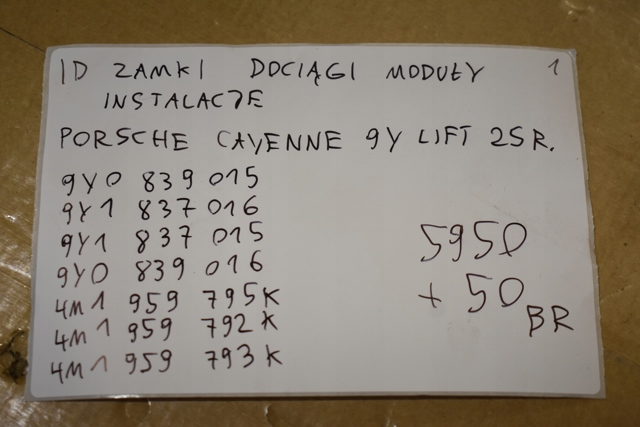 ID ZAMKI DOCIĄGI MODUŁY 1
INSTALACJE
PORSCHE CAYENNE 9Y LIFT 25R.
9Y0 839 015
9Y1 837 016
9Y1 837 015
9Y0 839 016
4M1 959 795K
4M1 959 792K
4M1 959 793K
5950
+ 50
BR